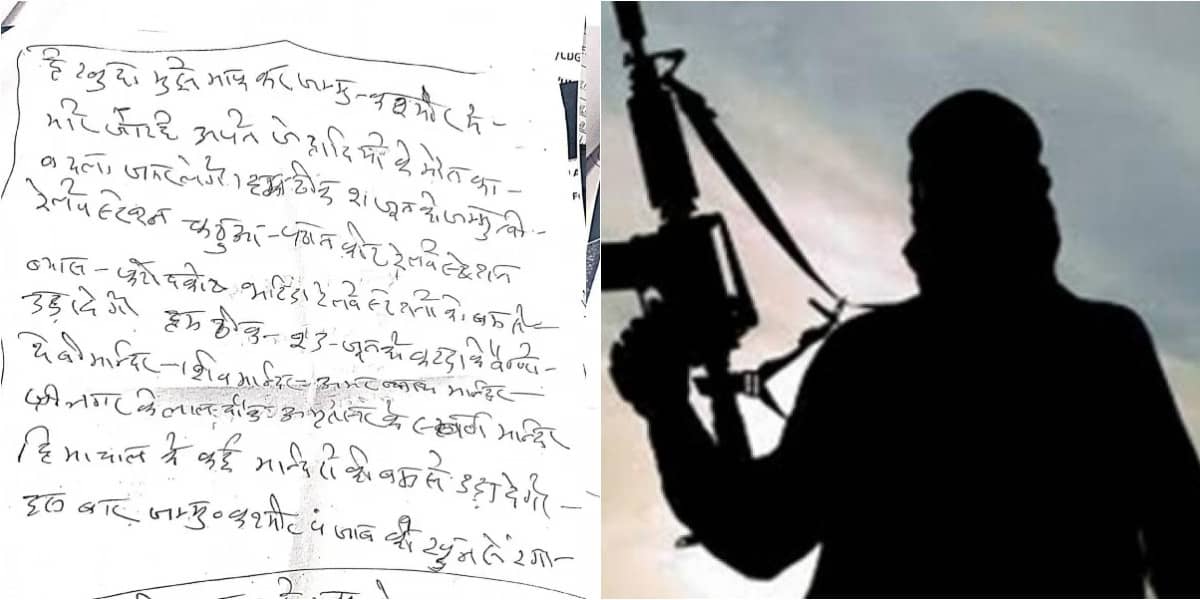 हे खुदा मुझे माफ कर जम्मु-कश्मीर मे-
मारे जा रहे अपने जेहादियो के मौत का-
बदला जरुर लेगे। हम ठीक जून को जम्मु
रेलवे स्टेशन कठुआ-पठान कोट रेलवे स्टेशन
ब्यास-फरीदकोट भटिंडा रेलवे स्टेशनो को बम से-
उड़ा देगे हम ठीक- जून को कटरा के वैष्णव-
देवी मान्दिर-शिव मान्दिर-अमरनाथ मान्दिर-
श्री नगर के लाल चौक अमृतसर के स्वर्ण मान्दिर
हिमाचल के कई मान्दिरो को बम से उड़ा देगे-
इस बार जम्मु० कश्मीर पंजाब को खुन से रंगा-
/LUG